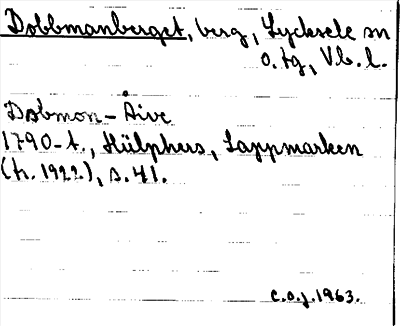 Dobbmanberget, berg, Lycksele sn
o. tg, Vb. l.
Dobmon-Aive
1790-t., Hülphers, Lappmarken
(tr. 1922), s. 41.
C.O.J. 1963.